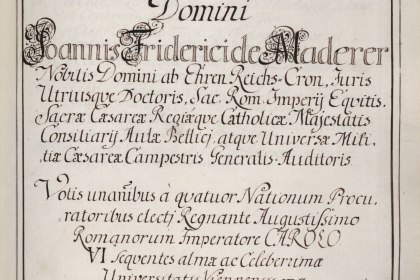 Domini
Joannis Friderici de Maderer
Nobilis Domini ab Ehren Reichs-Cron, Juris
Utriusque Doctoris, Sac. Rom. Imperij Equitis,
Sacræ Cæsareæ Regiæque Catholicæ Majestatis
Consiliarij Aulæ Bellicj, atque Universæ Mili-
tiæ Cæsareæ Campestris Generalis Auditoris.
Votis unanibus à quatuor Nationum Procu-
ratoribus electj Regnante Augustissimo
Romanorum Imperatore CAROLO
VI Sequentes almæ ac Celeberimæ
Universitatis Viennensis